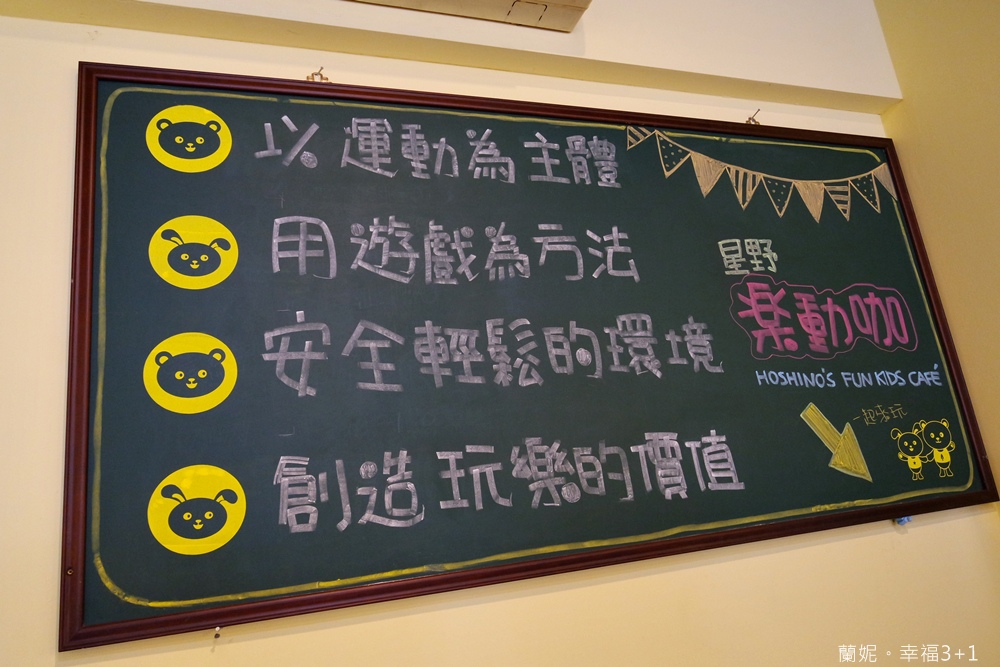 以運動為主體
用遊戲為方法
安全輕鬆的環境
創造玩樂的價值
星野
楽動咖
HOSHINO'S FUN KIDS CAFÉ
一起來玩
蘭妮。幸福3+1